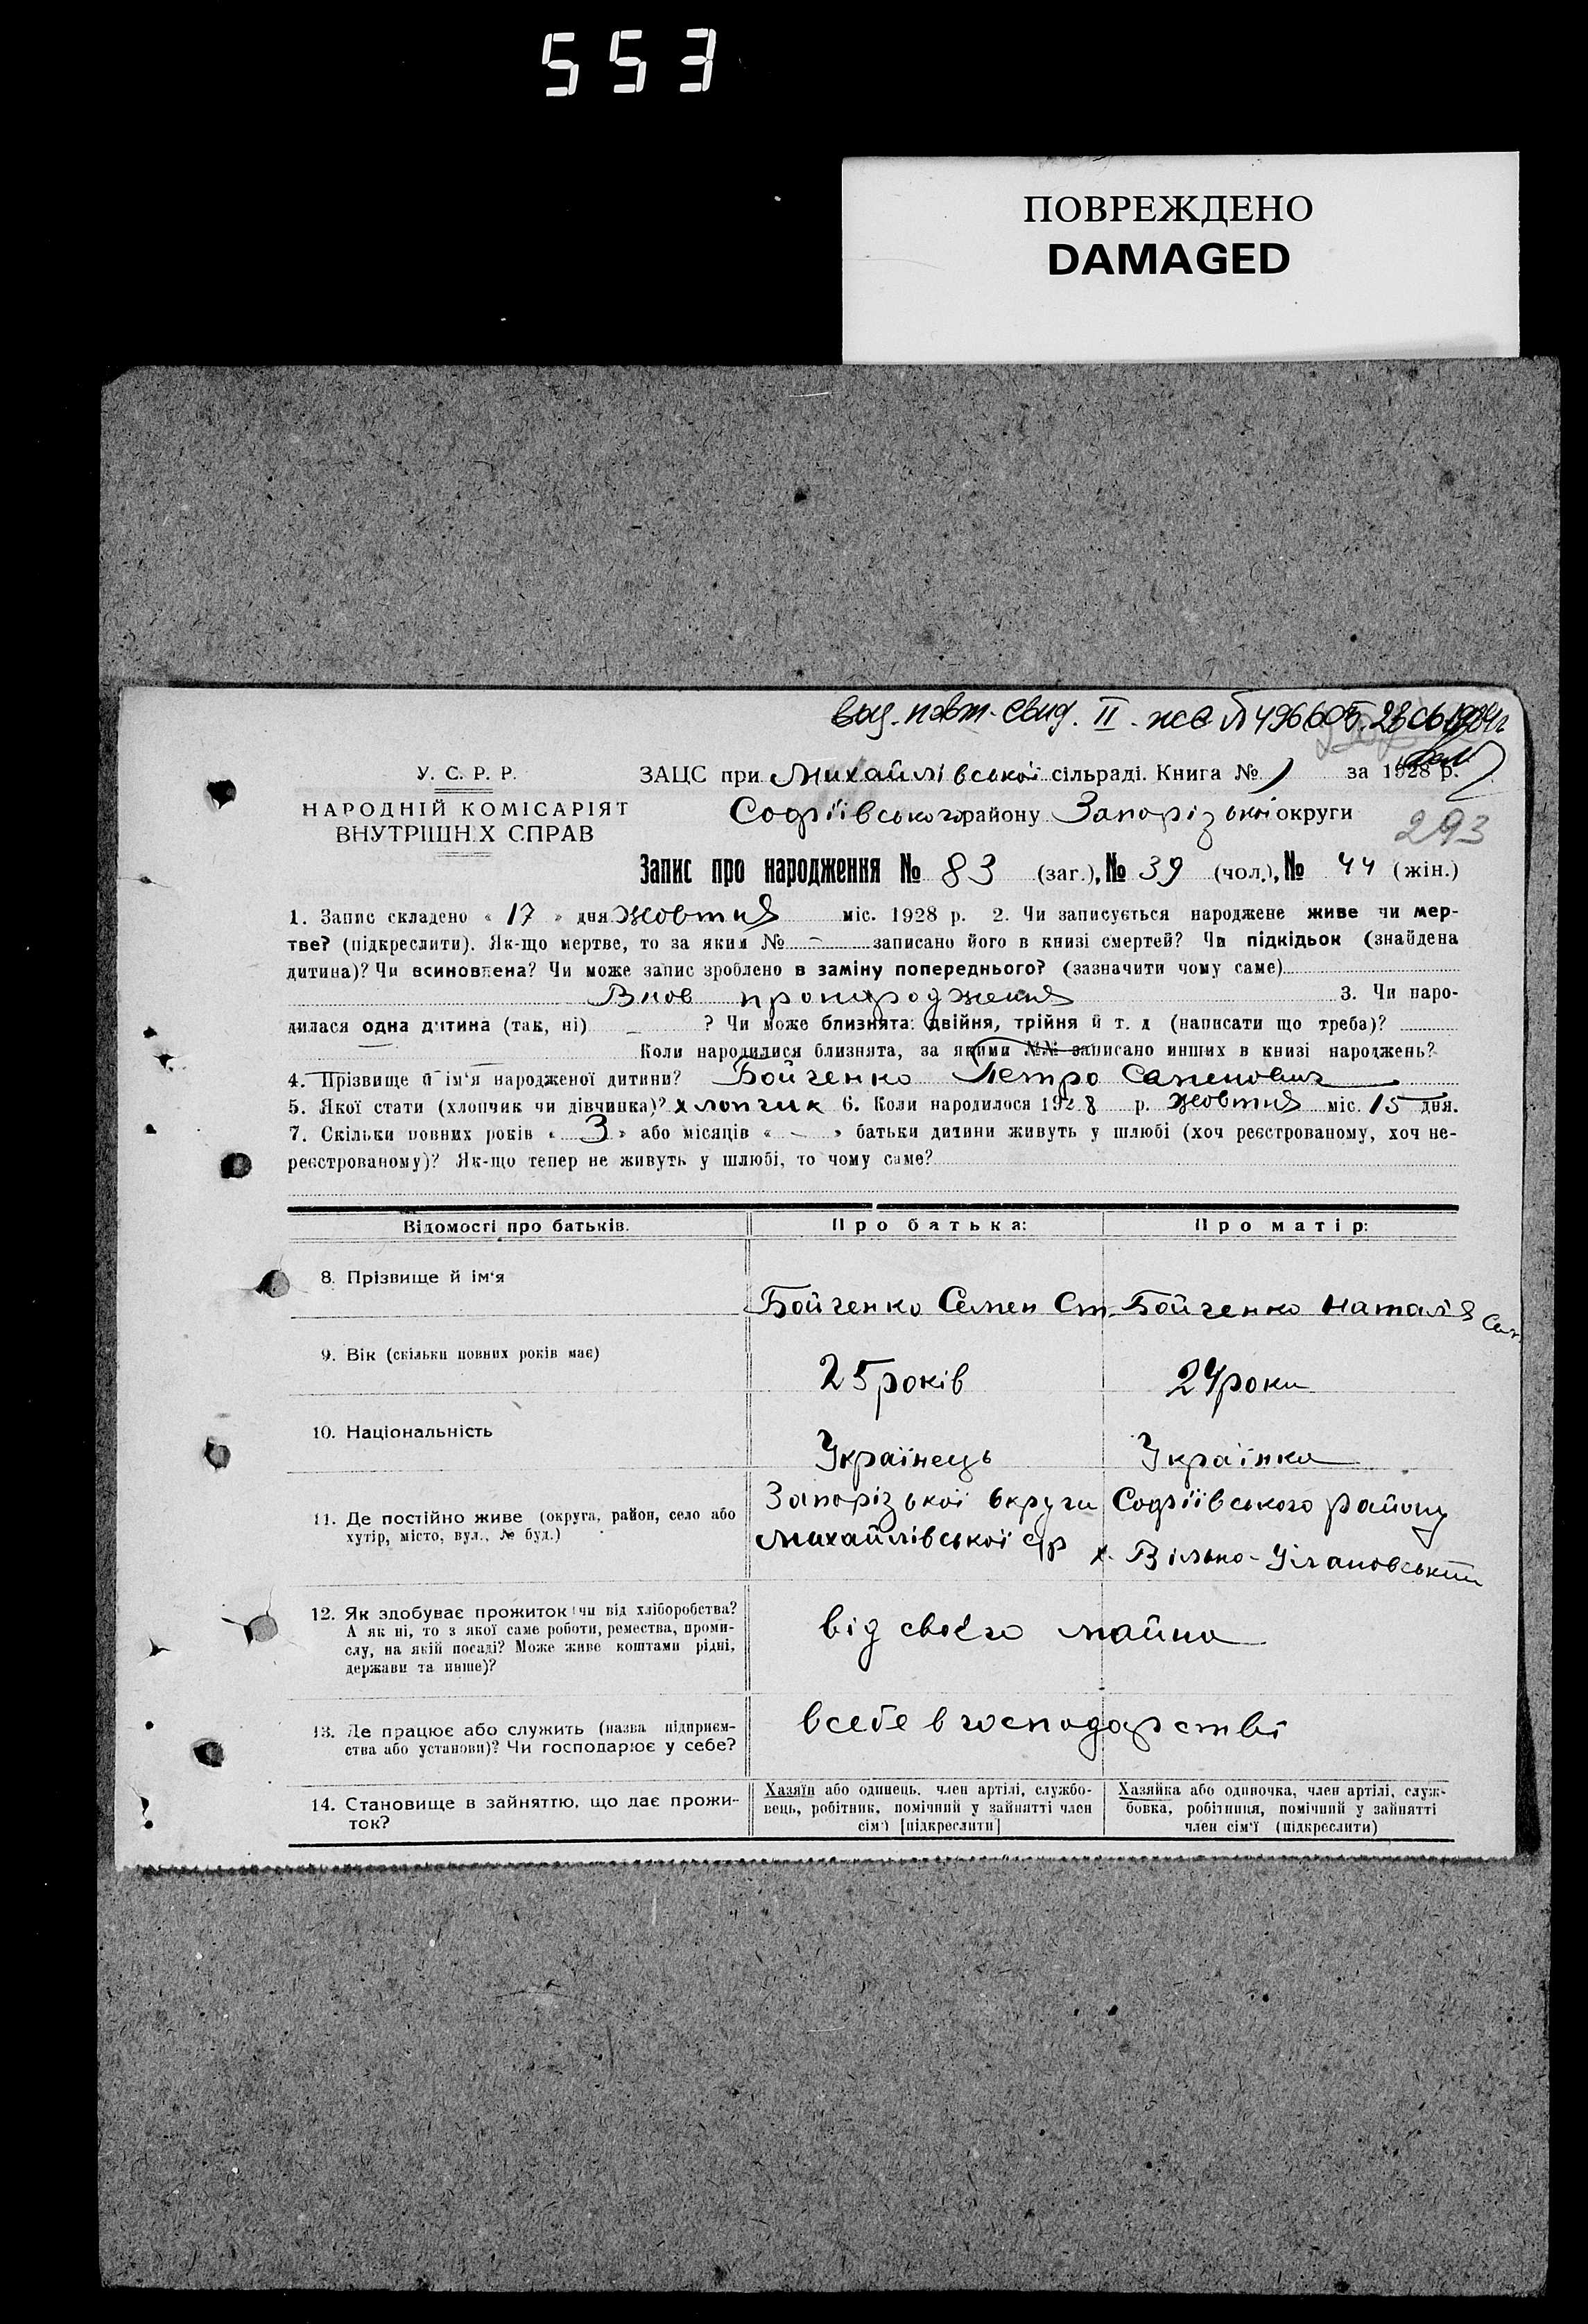 553
ПОВРЕЖДЕНО
DAMAGED
выд. повт. свид. II - ЖС № 496605
У. С. Р. Р.
НАРОДНІЙ КОМІСАРІЯТ
ВНУТРІШНІХ СПРАВ
ЗАЦС при Михайлівської сільраді. Книга № 1 за 1928 р.
Софіївського району Запорізької округи
293
Запис про народження № 83 (заг.), № 39 (чол.), № 44 (жін.)
1. Запис складено « 17 » дня Жовтня міс. 1928 р. 2. Чи записується народжене живе чи мер-
тве? (підкреслити). Як-що мертве, то за яким № - записано його в книзі смертей? Чи підкідьок (знайдена
дитина)? Чи всиновлена? Чи може запис зроблено в заміну попереднього? (зазначити чому саме)
Внов 3. Чи наро-
дилася одна дитина (так, ні) - ? Чи може близнята: двійня, трійня й т. д (написати що треба)?
Коли народилися близнята, за якими №№ записано инших в книзі народжень?
4. Прізвище й ім'я народженої дитини? Бойченко Петро Семенович
5. Якої статі (хлопчик чи дівчинка)? хлопчик 6. Коли народилося 1928 р. Жовтня міс. 15 дня.
7. Скільки повних років « 3 » або місяців « - » батьки дитини живуть у шлюбі (хоч реєстрованому, хоч не-
реєстрованому)? Як-що тепер не живуть у шлюбі, то чому саме?
Відомості про батьків. Про батька: Про матір:
8. Прізвище й ім'я
Бойченко Семен Ст. Бойченко Наталя
9. Вік (скільки повних років має)
25 років 24 роки
10. Національність
Українець Українка
11. Де постійно живе (округа, район, село або
хутір, місто, вул., № буд.)
Запорізької округи Софіївського району
Михайлівської с/р х. Вільно-Улановський
12. Як здобуває прожиток: чи від хліборобства?
А як ні, то з якої саме роботи, ремества, проми-
слу, на якій посаді? Може живе коштами рідні,
держави та инше)?
від свого майна
13. Де працює або служить (назва підприєм-
ства або установи)? Чи господарює у себе?
всебе в господарстві
14. Становище в зайняттю, що дає прожи-
ток?
Хазяїн або одинець, член артілі, службо-
вець, робітник, помічний у зайнятті член
сім'ї [підкреслити]
Хазяйка або одиночка, член артілі, служ-
бовка, робітниця, помічний у зайнятті
член сім'ї (підкреслити)